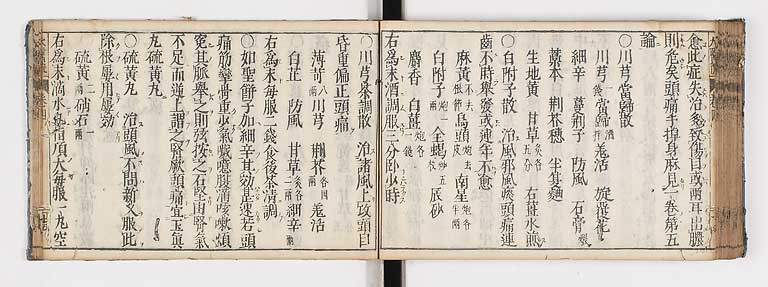 愈此症失治多致傷目或兩耳出膿
則危矣頭痛手捧身麻見一卷第五
論
〇川芎當歸散
川芎一錢 當歸酒 羌活 旋覆花
細辛 蔓荊子 防風 石膏煆
藁本 荊芥穗 半夏麯
生地黃 甘草炙各五分 右薑水煎
〇白附子散 治風邪風痰頭痛連
齒不時舉發或連年不愈
麻黃不去根節 烏頭炮去 南星炮各半兩
白附子一兩 全蝎炒五 辰砂
麝香 白薑炮各一錢
右爲末酒調服三分臥少時
〇川芎茶調散 治諸風上攻頭目
昏重偏正頭痛
薄荷八兩 川芎 荊芥各四兩 羌活
白芷 防風 甘草炙各二兩 細辛一兩
右爲末每服二錢食後茶清調
〇如聖餅子加細辛其効甚速若頭
痛筋攣骨重少氣噦噫腹滿咳嗽煩
冤其脉舉之則弦按之石堅由腎氣
不足而逆上謂之腎厥頭痛宜玉眞
丸硫黃丸
〇硫黃丸 治頭風不問新久服此
除根屢用屢効
硫黃二兩 硝石一兩
右爲末滴水丸指頂大每服一丸空